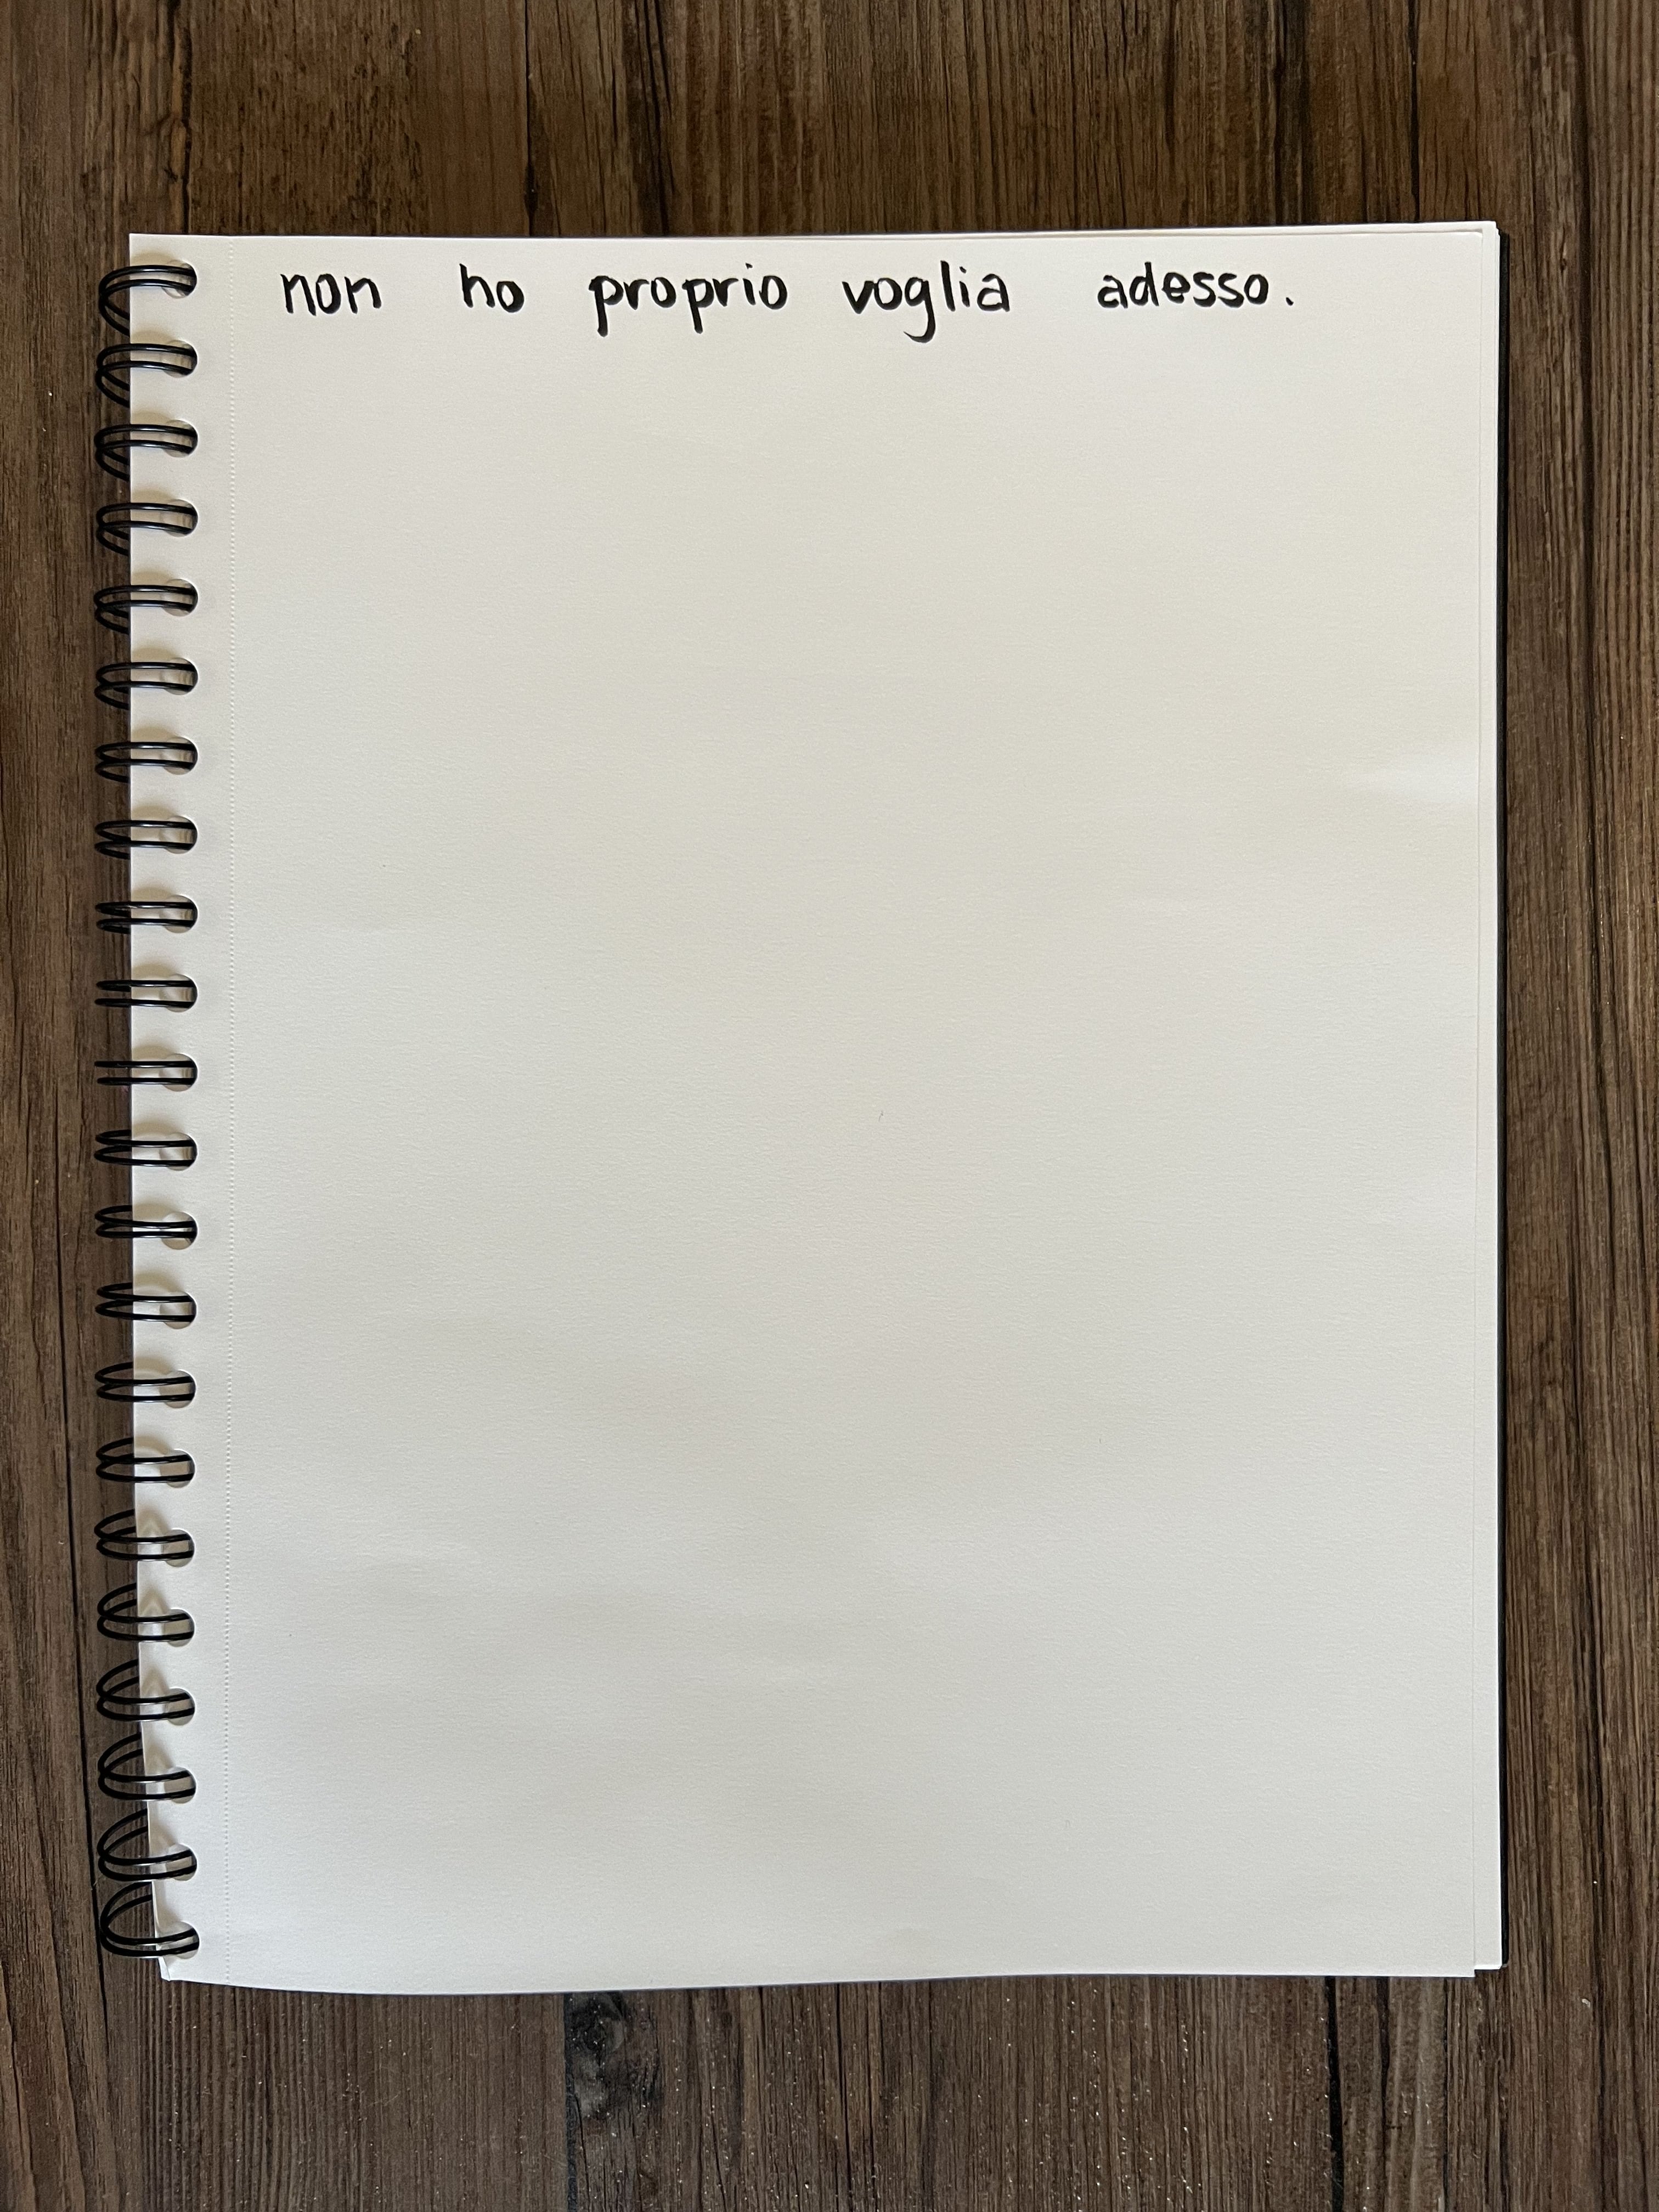 non ho proprio voglia adesso.